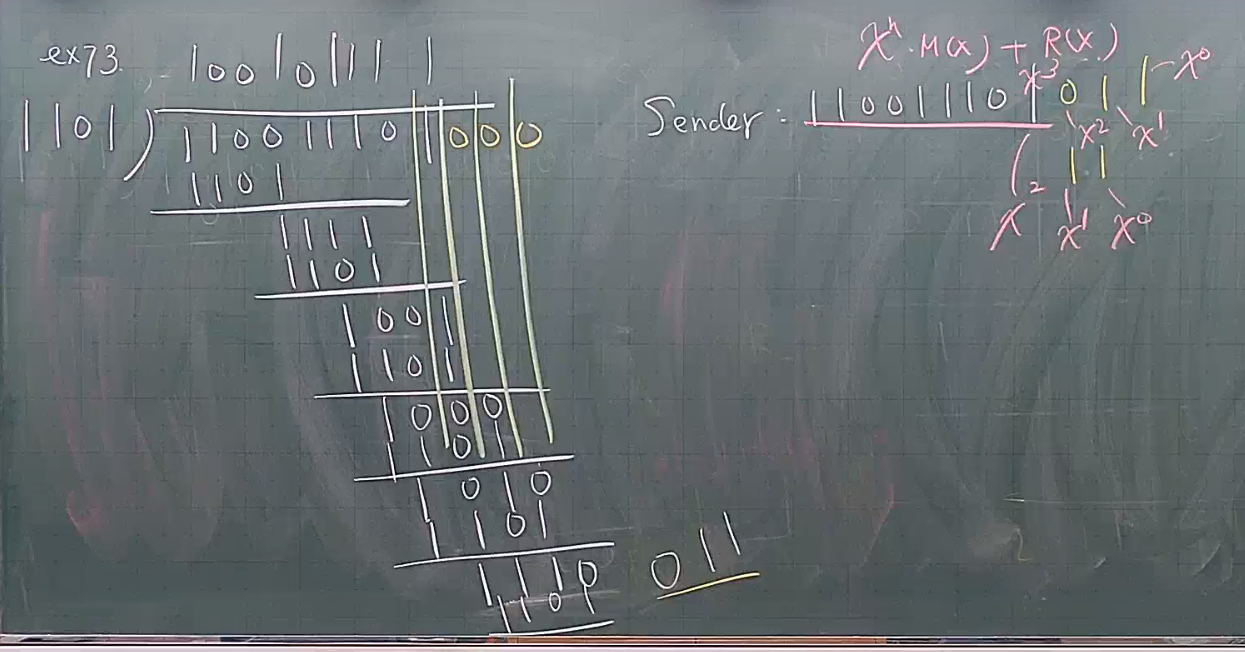 ex73.
10010111 1
1101 ) 110011101000
1101
1111
1101
1001
1101
1000
1101
1010
1101
1110
1101
011
Xⁿ·M(X) + R(X)
Sender: 110011101 011
X³ X² X¹ X⁰
11
X² X¹ X⁰